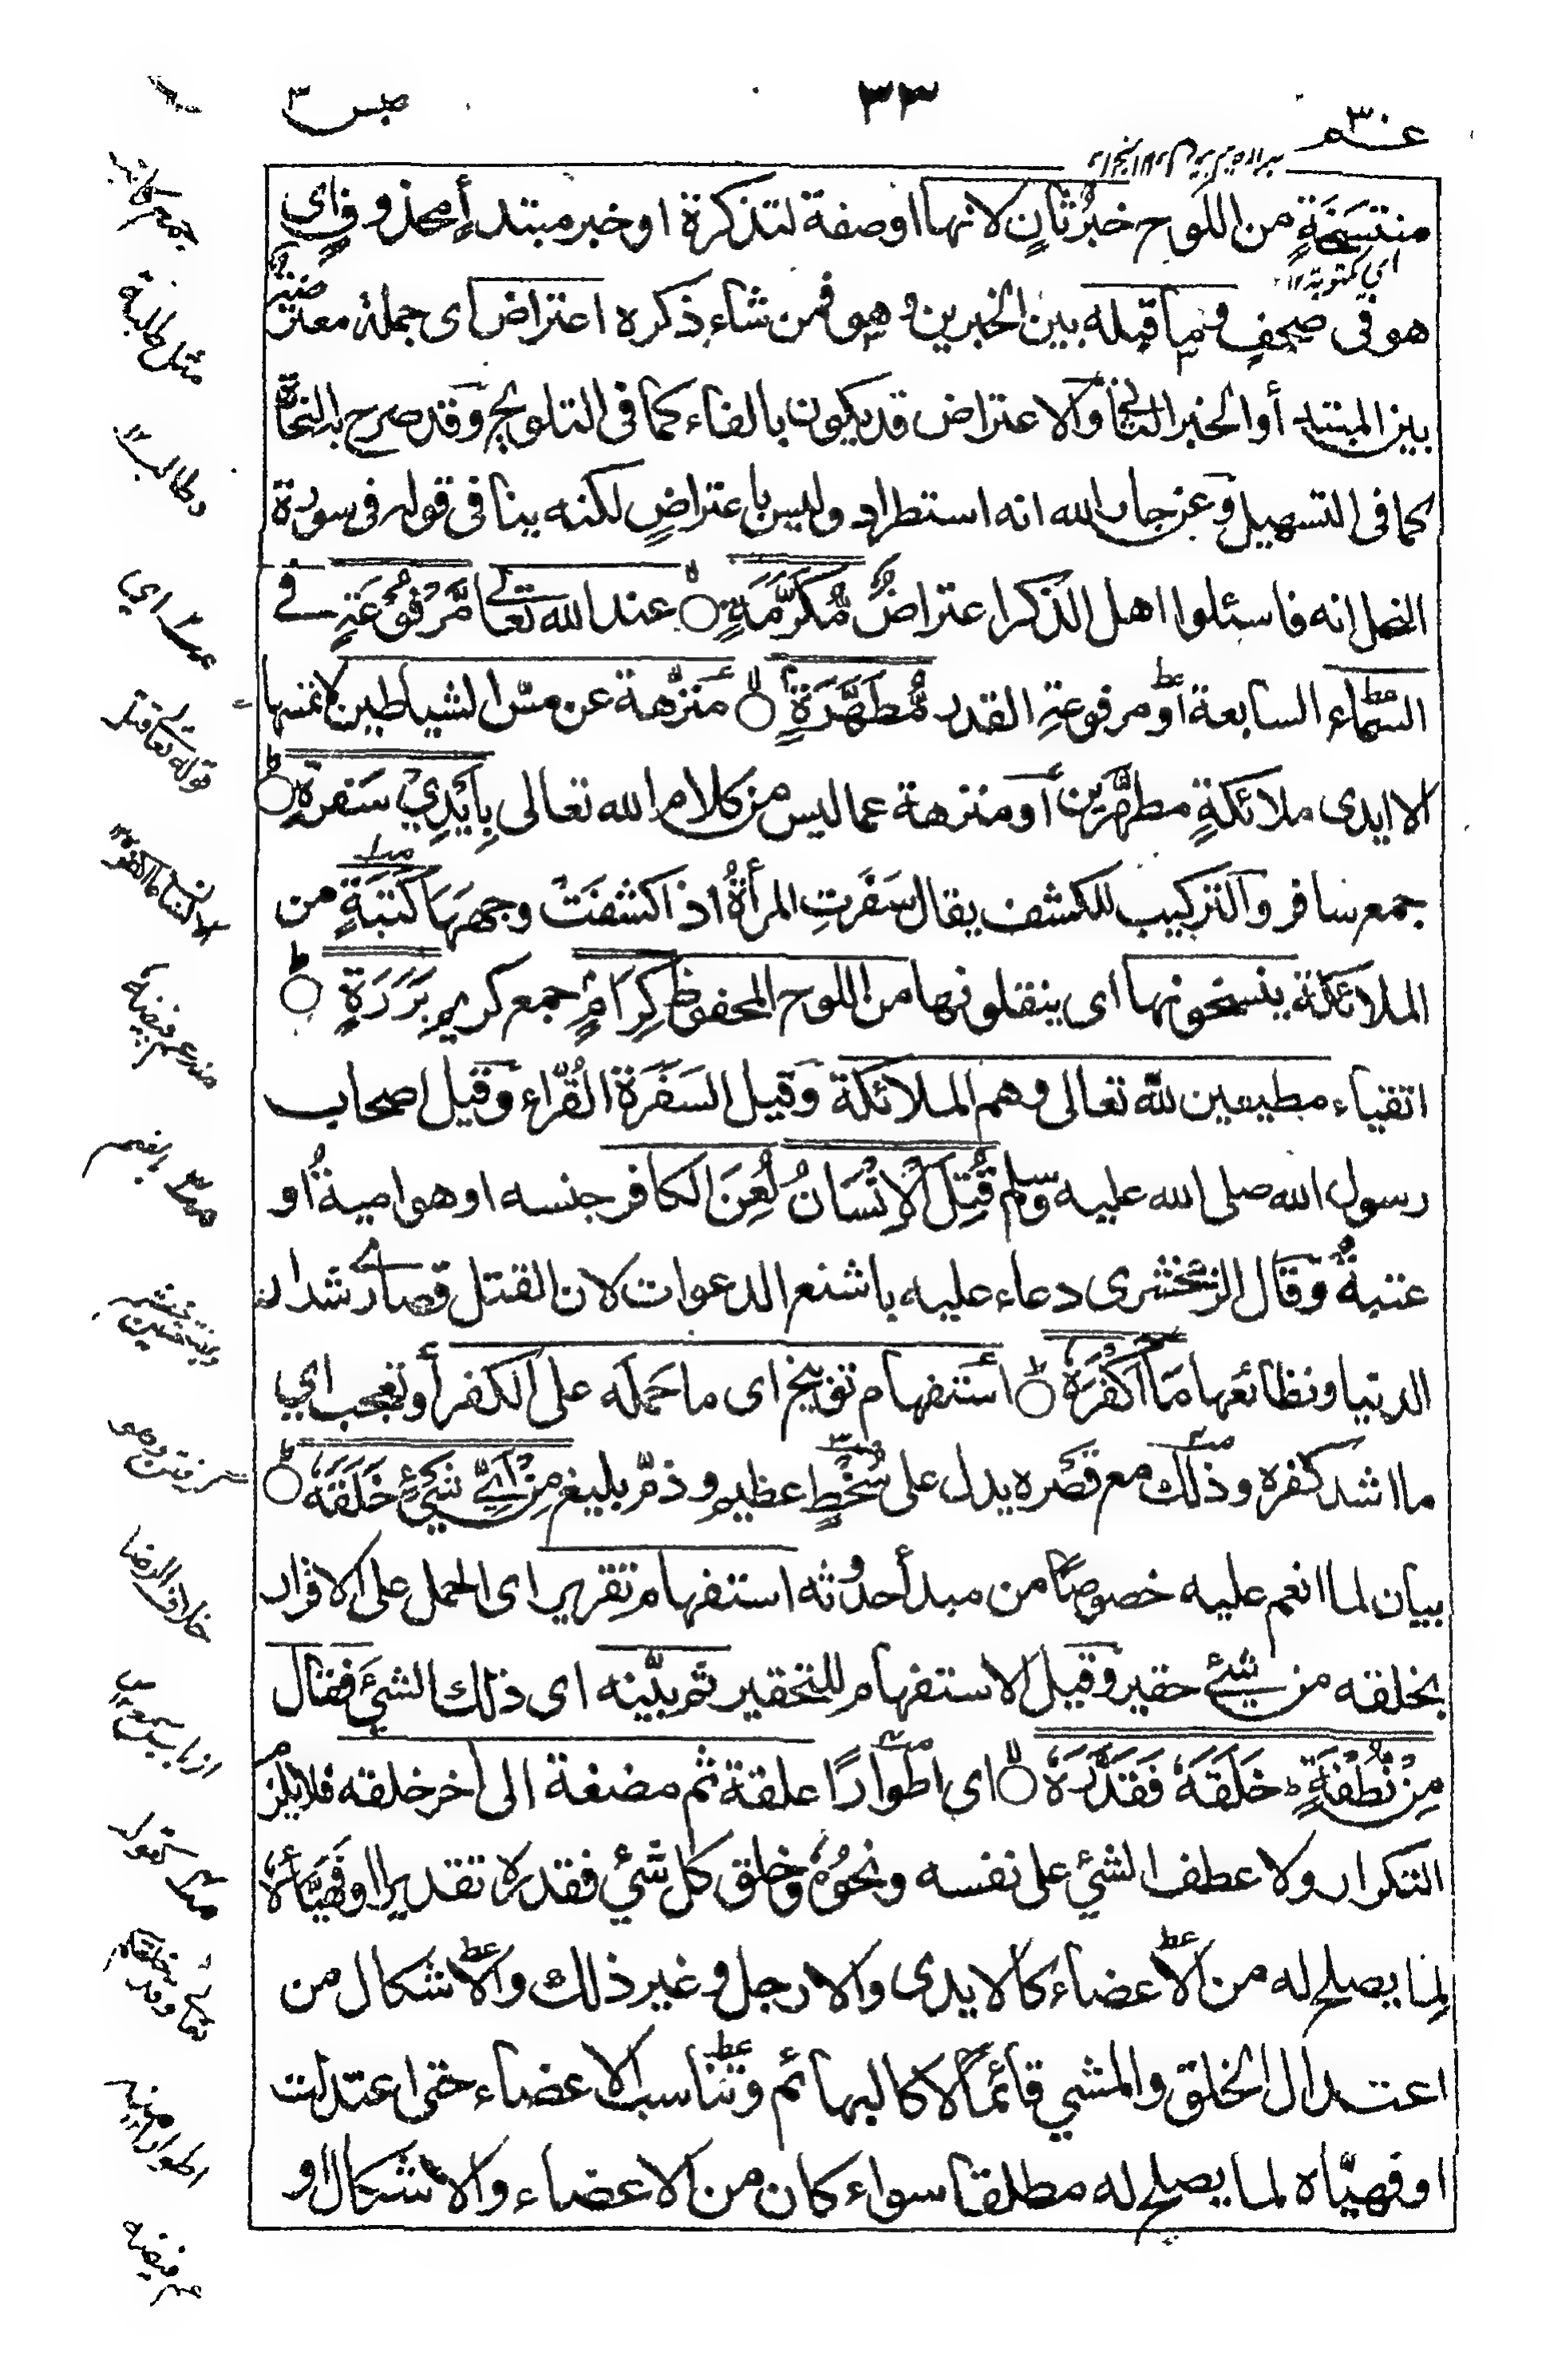 عـم ٣٠
٣٣
عبس
منتسَخَةٍ من اللوح خبرُثانٍ لانها اوصفة لتذكرة اوخبر مبتدأٍ محذوفٍ اى
اي مكتوبة ١٢
هو فى صحفٍ وما قبله بين الخبرين وهو فمن شاء ذكره اعتراض اى جملة معترضة
بين المبتدأ والخبر الثانى والاعتراض قد يكون بالفاء كما فى التلويح وقد صرح به النحاة
كما فى التسهيل وعن جار الله انه استطراد وليس باعتراضٍ لكنه ينافى قوله فى سورة
النحل انه فاسئلوا اهل الذكر اعتراضٌ مُّكَرَّمَةٍ عند الله تعالى مَّرْفُوْعَةٍ فے
السَّماء السابعة أو مرفوعةِ القدر مُّطَهَّرَةٍ منزَّهة عن مسّ الشياطين لا تمسها
الا ايدى ملائكةٍ مطهَّرين أو منزهة عما ليس من كلام الله تعالى بِاَيْدِيْ سَفَرَةٍ
جمع سافر والتركيب للكشف يقال سَفَرَتِ المرأةُ اذا كشفَتْ وجهَهَا كَتَبَةٍ من
الملائكة ينسخونها اى ينقلونها من اللوح المحفوظ كِرَامٍ جمع كريم بَرَرَةٍ
اتقياء مطيعين لله تعالى وهم الملائكة وقيل السَفَرَة القُرّاء وقيل اصحاب
رسول الله صلى الله عليه وسلم قُتِلَ الْاِنْسَانُ لُعِنَ الكافر جنسه او هو اميةُ او
عتبةُ وقال الزمخشرى دعاء عليه باشنع الدعوات لان القتل قصارٰى شدائد
الدنيا ونظائعها مَا اَكْفَرَهٗ استفهام توبيخ اى ما حَمَلَه على الكفر أو تعجب اي
ما اشد كفره وذلك مع قصَره يدل على سُخْطٍ عظيم وذمّ بليغ مِنْ اَيِّ شَيْءٍ خَلَقَهٗ
بيان لما انعم عليه خصوصًا من مبدأ حدوثه استفهام تقرير اى الحمل على الاقرار
بخلقه من شيئے حقير وقيل الاستفهام للتحقير ثم بيّنه اى ذلك الشئ فقال
مِنْ نُّطْفَةٍ خَلَقَهٗ فَقَدَّرَهٗ اى اطوارًا علقة ثم مضغة الى اخر خلقه فلا يلزم
التكرار ولا عطف الشئ على نفسه ونحوُهٗ وخلق كل شئ فقدره تقديرا او فهيَّأَهٗ
لما يصلح له من الاعضاء كالايدى والارجل وغير ذلك والاشكال من
اعتدال الخلق والمشي قائمًا لا كالبهائم وتناسب الاعضاء حتى اعتدلت
او فهيّاه لما يصلح له مطلقا سواء كان من الاعضاء والاشكال او
مثل طلبة
وطالب ١٢
خلاف الرضا